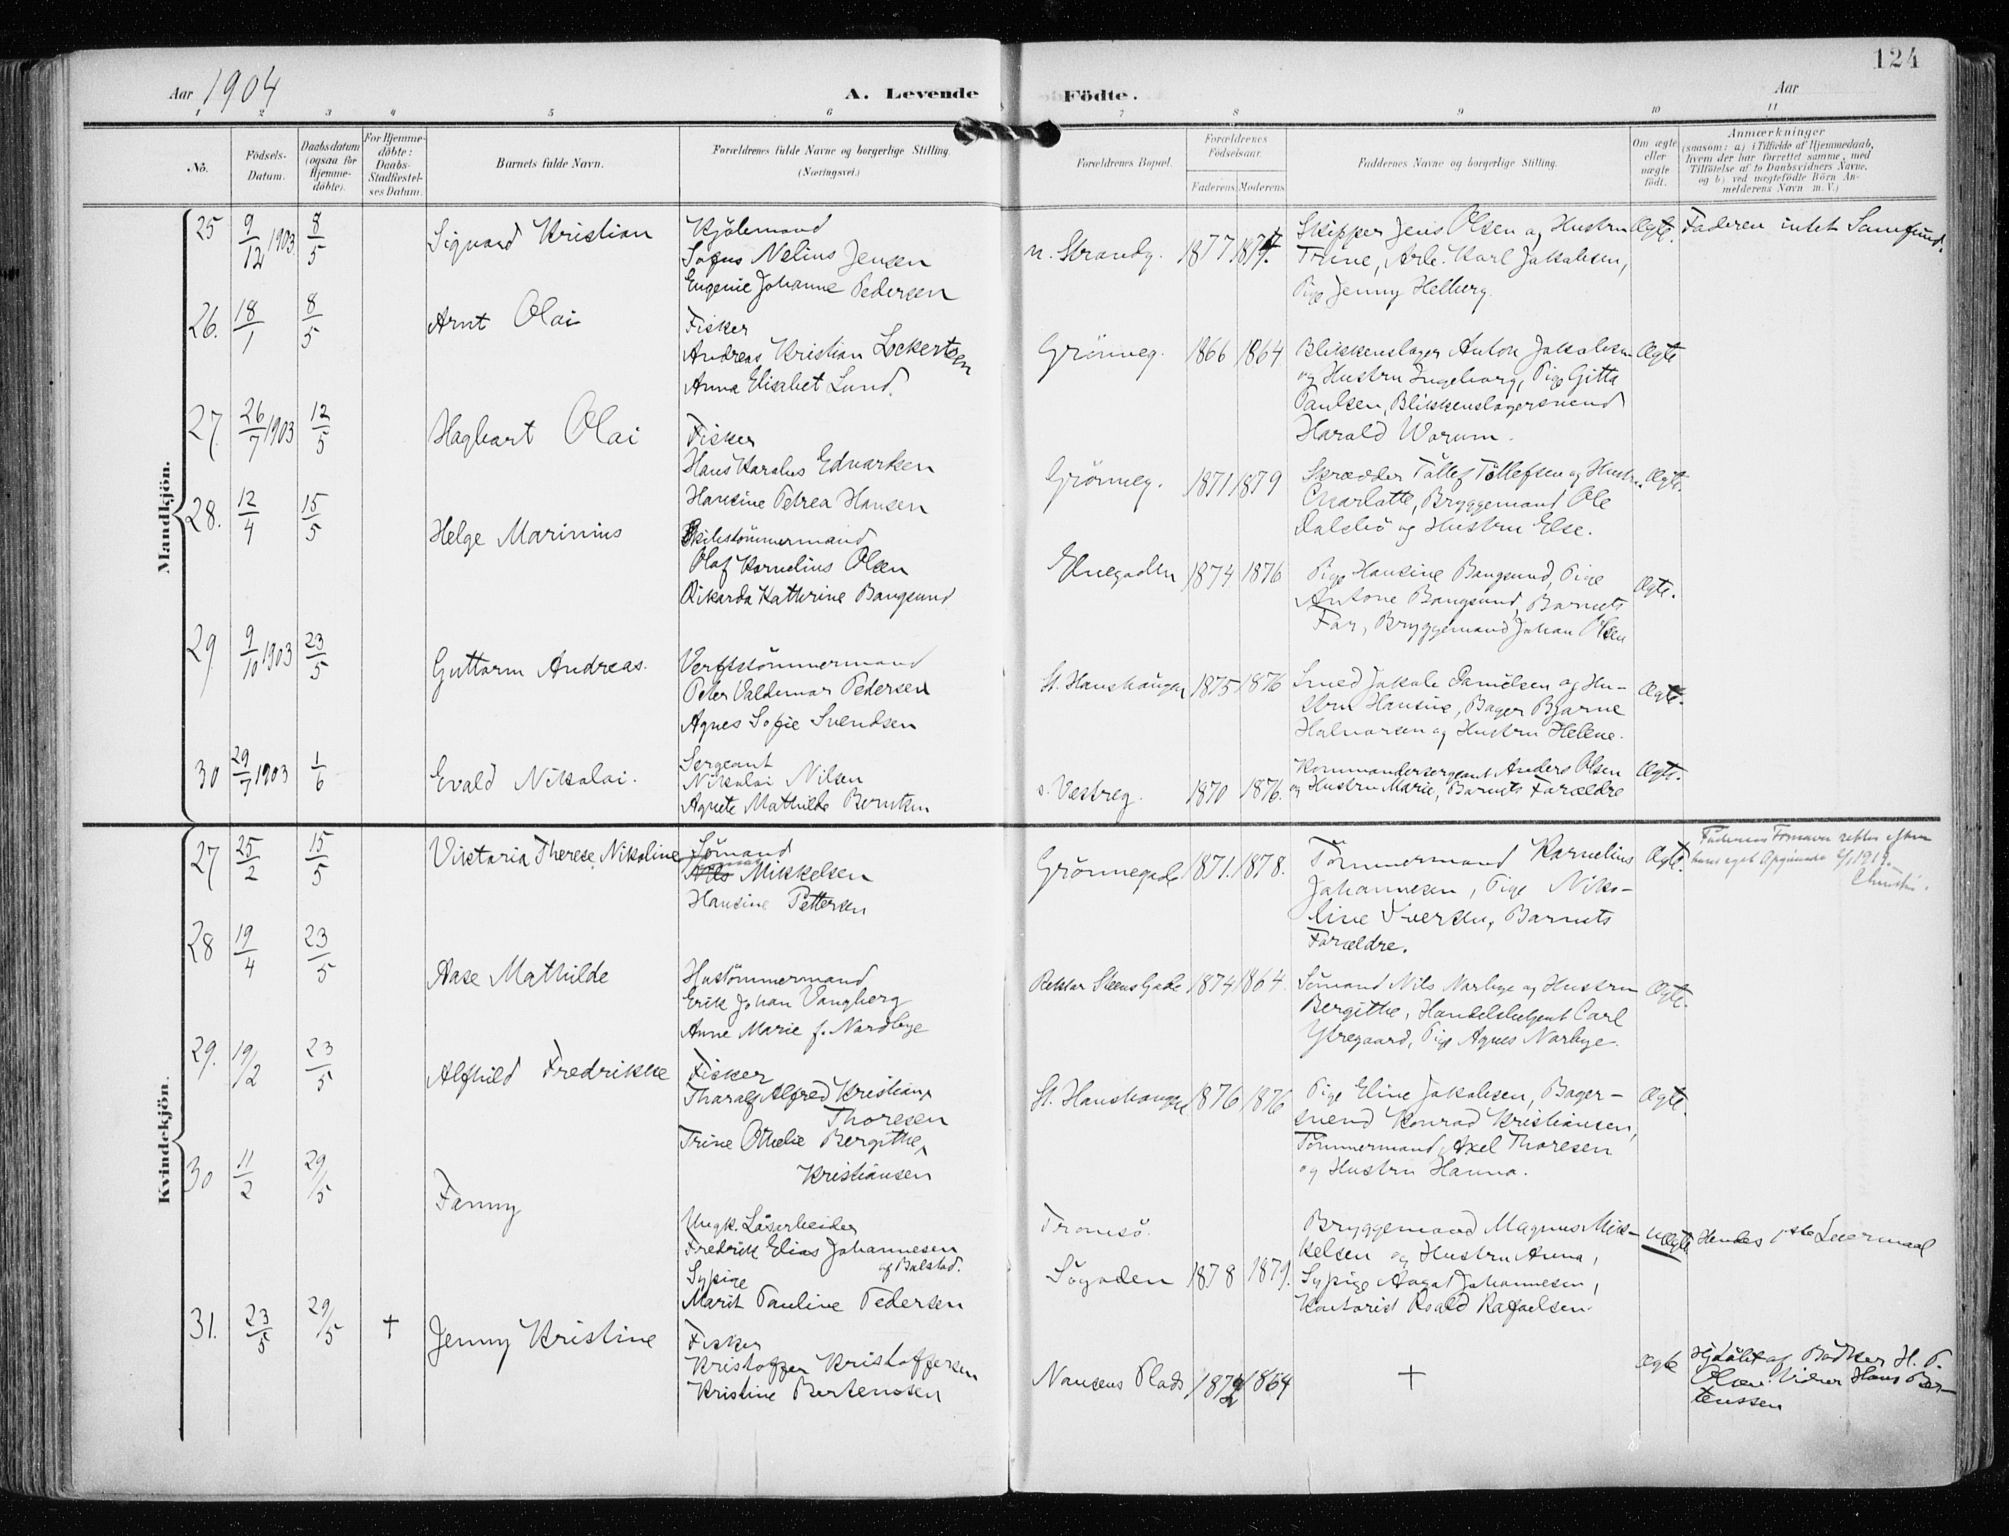 124
Aar 1904
A. Levende
Födte.
Aar
1 2 3 4 5 6 7 8 9 10 11
No.
Födsels-
Datum.
Daabsdatum
(ogsaa for
Hjemme-
döbte).
For Hjemme-
döbte:
Daabs-
Stadfæstel-
ses Datum.
Barnets fulde Navn.
Forældrenes fulde Navne og borgerlige Stilling.
(Næringsvei.)
Forældrenes Bopæl.
Forældrenes
Födselsaar.
Faderens Moderens
Faddernes Navne og borgerlige Stilling.
Om ægte
eller
uægte
födt.
Anmærkninger
(saasom: a) i Tilfælde af Hjemmedaab,
hvem der har forrettet samme, med
Tilföielse af to Daabsvidners Navne,
og b) ved uægtefödte Börn An-
melderens Navn m. V.)
Mandkjön.
25 9/12 1903 8/5 Sigvard Kristian
Sofus Nelius Jensen
Eugenie Johanne Pedersen
n. Strandg. 1877
Skipper Jens Olsen og Hustru
Trine, Arb. Karl Jakobsen,
Pige Jenny Helberg.
Ægte. Faderen intet Samfund.
26. 18/1 8/5 Arnt Olai
Fisker
Andreas Kristian Lockertsen
Anna Elisabet Lund.
Grönneg. 1866 1864
Blikkenslager Anton Jakobsen
og Hustru Ingeborg, Pige Gitta
Paulsen, Blikkenslagersvend
Harald Worum.
Ægte
27. 26/7 1903 12/5 Hagbart Olai
Fisker
Hans Karolus Edvardsen
Hansine Petrea Hansen
Grönneg. 1871 1879
Skrædder Tollef Tollefsen og Hustru
Charlotte, Bryggemand Ole
Dalsbö og Hustru Else.
Ægte.
28. 12/4 15/5 Helge Marinius
Skibstömmermand
Olaf Kornelius Olsen
Rikarda Kathrine Bangsund
Elvegaden 1874 1876
Pige Hansine Bangsund, Pige
Antone Bangsund, Barnets
Far, Bryggemand Johan Olsen
Ægte.
29 9/10 1903 23/5 Guttorm Andreas.
Verftstömmermand
Peter Valdemar Pedersen
Agnes Sofie Svendsen
St. Hanshaugen 1875 1876
Smed Jakob Danielsen og Hu-
stru Hansine, Bager Bjarne
Halvorsen og Hustru Helene.
Ægte.
30 29/7 1903 1/6 Evald Nikolai.
Sergeant
Nikolai Nilsen
Agnete Mathilde Berntsen
s. Vestreg. 1870 1876.
Kommandersergeant Anders Olsen
og Hustru Marie, Barnets Forældre
Ægte.
Kvindekjön.
27 25/2 15/5 Viktoria Therese Nikoline
Sömand
Nils Mikkelsen
Hansine Pettersen
Grönnegade 1871. 1878.
Tömmermand Kornelius
Johannesen, Pige Niko-
line Iversen, Barnets
Forældre.
Ægte.
Faderens Fornavn rettet efter
hans eget Opgivende 1919.
28 19/4 23/5 Aase Mathilde
Hustömmermand
Erik Johan Vangberg
Anne Marie f. Nordbye
Rektor Steens Gade 1874 1864.
Sömand Nils Norbye og Hustru
Bergithe, Handelsbetjent Carl
Ytregaard, Pige Agnes Norbye.
Ægte.
29. 19/2 23/5 Alfhild Fredrikke
Fisker
Tharalf Alfred Kristian
Thoresen
Trine Othelie Bergithe
Kristiansen
St. Hanshaugen 1876 1876
Pige Eline Jakobsen, Bager-
svend Konrad Kristiansen,
Tömmermand Axel Thoresen
og Hustru Hanna.
Ægte.
30 11/2 29/5 Fanny
Ungk. Lösarbeider
Fredrik Elias Johannesen
af Balstad.
Sypige
Marit Pauline Pedersen
Tromsö.
Sögaden 1878 1879.
Bryggemand Magnus Mik-
kelsen og Hustru Anna,
Sypige Aagot Johannesen,
Kontorist Roald Rafaelsen.
Uægte Hendes 1ste Leiermaal
31. 23/5 29/5 + Jenny Kristine
Fisker
Kristoffer Kristoffersen
Kristine Bertenssen
Nansens Plads 1864
+
Ægte
Hjdöbt af Bödker H. P.
Olsen. Vidner Hans Ber-
tenssen